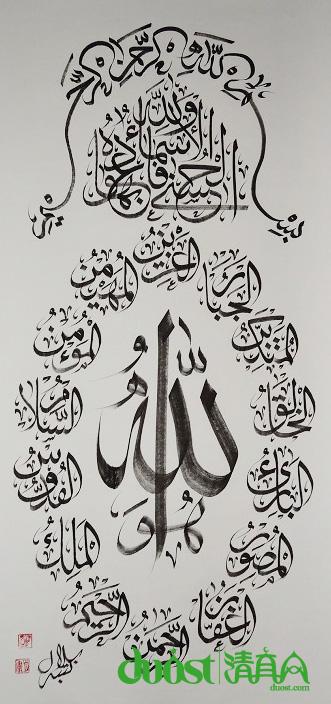 بسم الله الرحمن الرحيم
ولله الأسماء الحسنى فادعوه بها
هو
الله
الرحمن
الرحيم
الملك
القدوس
السلام
المؤمن
المهيمن
العزيز
الجبار
المتكبر
الخالق
البارئ
المصور
الغفار
duost 清真
duost.com